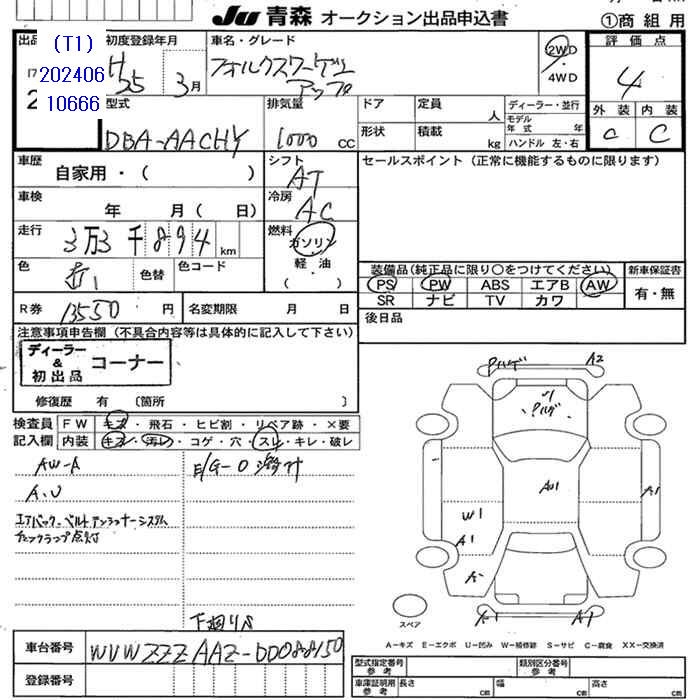 JU 青森 オークション出品申込書
①商組用
出品
(T1)
202406
10666
初度登録年月
H 25 3月
車名・グレード
フォルクスワーゲン
アップ
2WD
4WD
評価点
4
外装 内装
C C
型式
DBA-AACHY
排気量
1000 CC
ドア
定員 人
ディーラー・並行
モデル年式 年
形状
積載 kg
ハンドル 左・右
車歴
自家用・( )
シフト
AT
セールスポイント(正常に機能するものに限ります)
車検
年 月( 日)
冷房
AC
走行
3万3千894 km
燃料
ガソリン
軽油
( )
色
色替
色コード
装備品(純正品に限り○をつけてください)
PS PW ABS エアB AW
SR ナビ TV カワ
新車保証書
有・無
R券 13550 円
名変期限 月 日
後日品
注意事項申告欄(不具合内容等は具体的に記入して下さい)
ディーラー
&
初出品
コーナー
修復歴 有 〔箇所 〕
検査員
記入欄
FW キズ・飛石・ヒビ割・リペア跡・×要
内装 キズ・汚レ・コゲ・穴・スレ・キレ・破レ
AW-A
A.U
エアバック、ベルトテンショナーシステム
チェックランプ点灯
下廻りS
Pハゲ
A2
Pハゲ
AU1
A1
W1
A1
A-
X-1
A1
スペア
A-キズ E-エクボ U-凹み W-補修跡 S-サビ C-腐食 XX-交換済
車台番号
WVWZZZAAZ-DD088150
登録番号
型式指定番号
参考
類別区分番号
参考
車庫証明用
参考
長さ cm
幅 cm
高さ cm